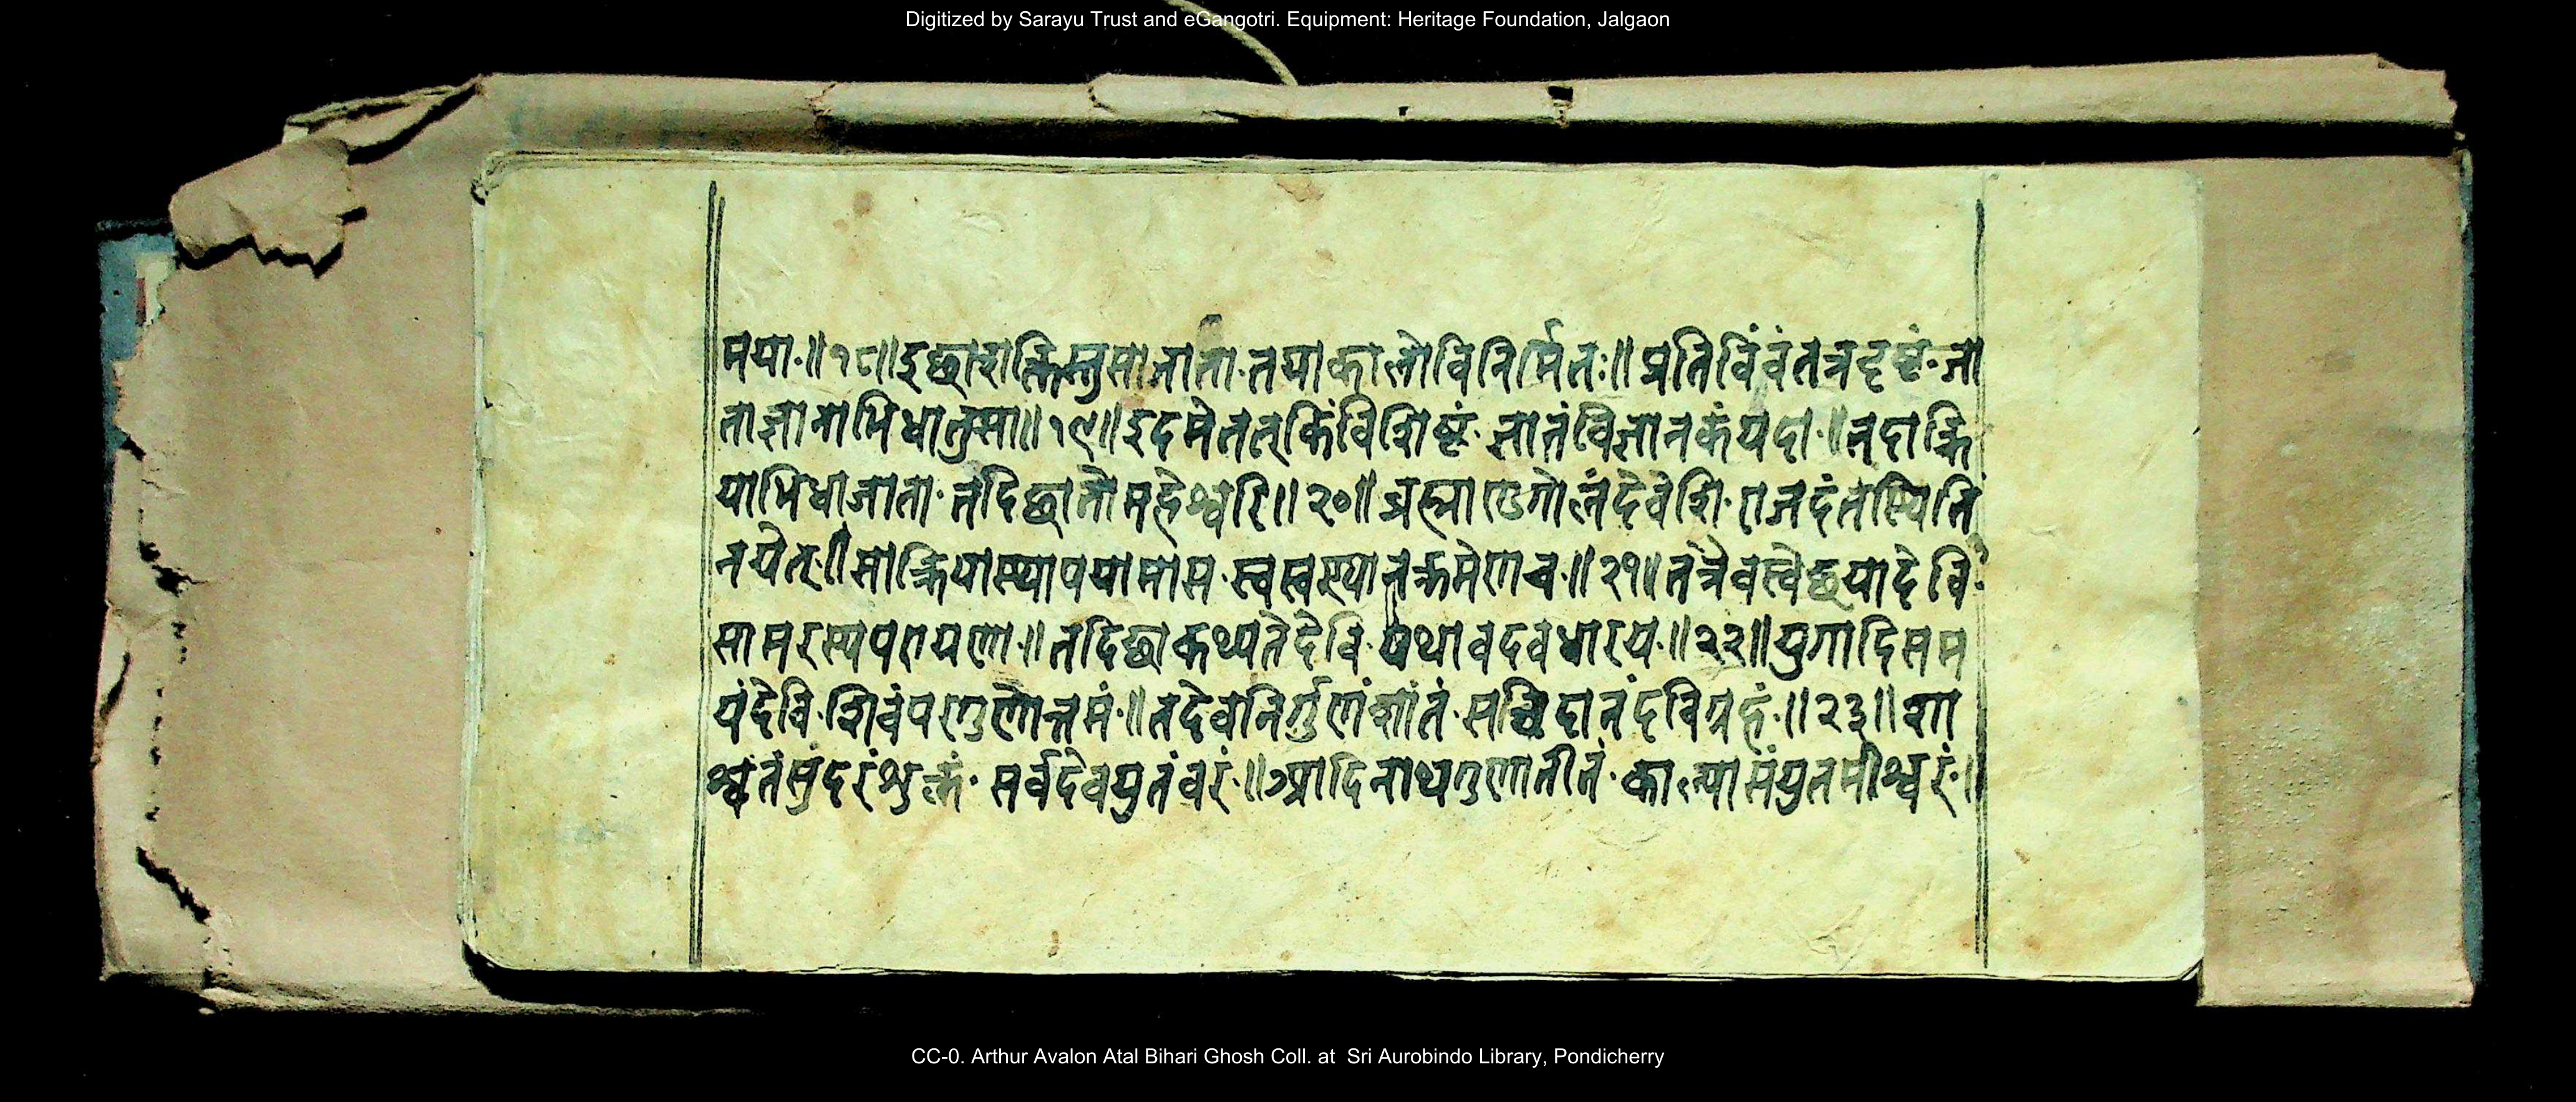 Digitized by Sarayu Trust and eGangotri. Equipment: Heritage Foundation, Jalgaon
मया.॥१८॥इछाशक्तिस्तुसाजाता.तयाकालोविनिर्मितः॥प्रतिविंवंतत्रदृष्टं.जा
ताज्ञानाभिधातुसा॥१९॥इदमेतत्किंविशिष्टं.जातंविज्ञानकंयदा.॥तदाक्रि
याभिधाजाता.तदिछातोमहेश्वरि॥२०॥ब्रह्माण्डगोलंदेवेशि.राजदंतस्थितिं
नयेत्.॥साक्रियास्थापयामास.स्वस्वस्थानक्रमेणच.॥२१॥तत्रैवस्वेछयादेवि.
सामरस्यपरायणा.॥तदिछाकथ्यतेदेवि.यथावदवधारय.॥२२॥युगादिसम
यंदेवि.शिवंपरगुणोत्तमं.॥तदेवनिर्गुणंशांतं.सच्चिदानंदविग्रहं.॥२३॥शा
श्वतंसुंदरंशुक्लं.सर्वदेवयुतंवरं.॥आदिनाथगुणातीतं.काल्यासंयुतमीश्वरं.॥
CC-0. Arthur Avalon Atal Bihari Ghosh Coll. at Sri Aurobindo Library, Pondicherry